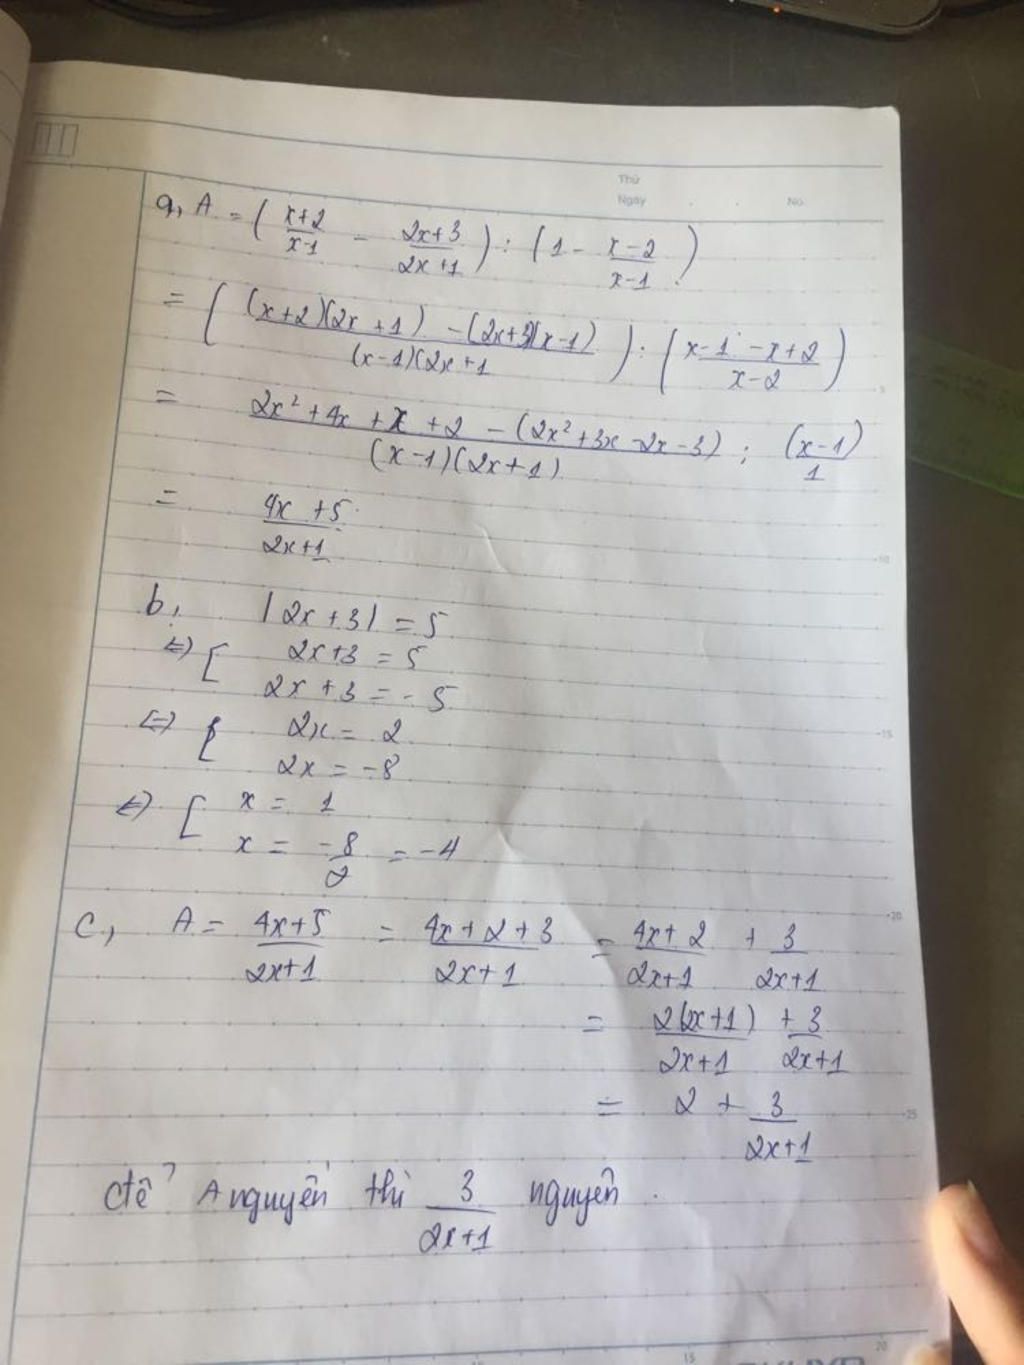 Thứ
Ngày No.
a, A = ( x+2/x-1 - 2x+3/2x+1 ) : ( 1 - x-2/x-1 )
= ( (x+2)(2x+1) - (2x+3)(x-1) / (x-1)(2x+1 ) : ( x-1-x+2 / x-2 )
= 2x² + 4x + x + 2 - (2x² + 3x - 2x - 3) / (x-1)(2x+1) : (x-1)/1
= 4x+5 / 2x+1
b, |2x+3| = 5
⇔ [ 2x+3 = 5
2x+3 = -5
⇔ [ 2x = 2
2x = -8
⇔ [ x = 1
x = -8/2 = -4
c, A = 4x+5/2x+1 = 4x+2+3/2x+1 = 4x+2/2x+1 + 3/2x+1
= 2(2x+1)/2x+1 + 3/2x+1
= 2 + 3/2x+1
để A nguyên thì 3/2x+1 nguyên.